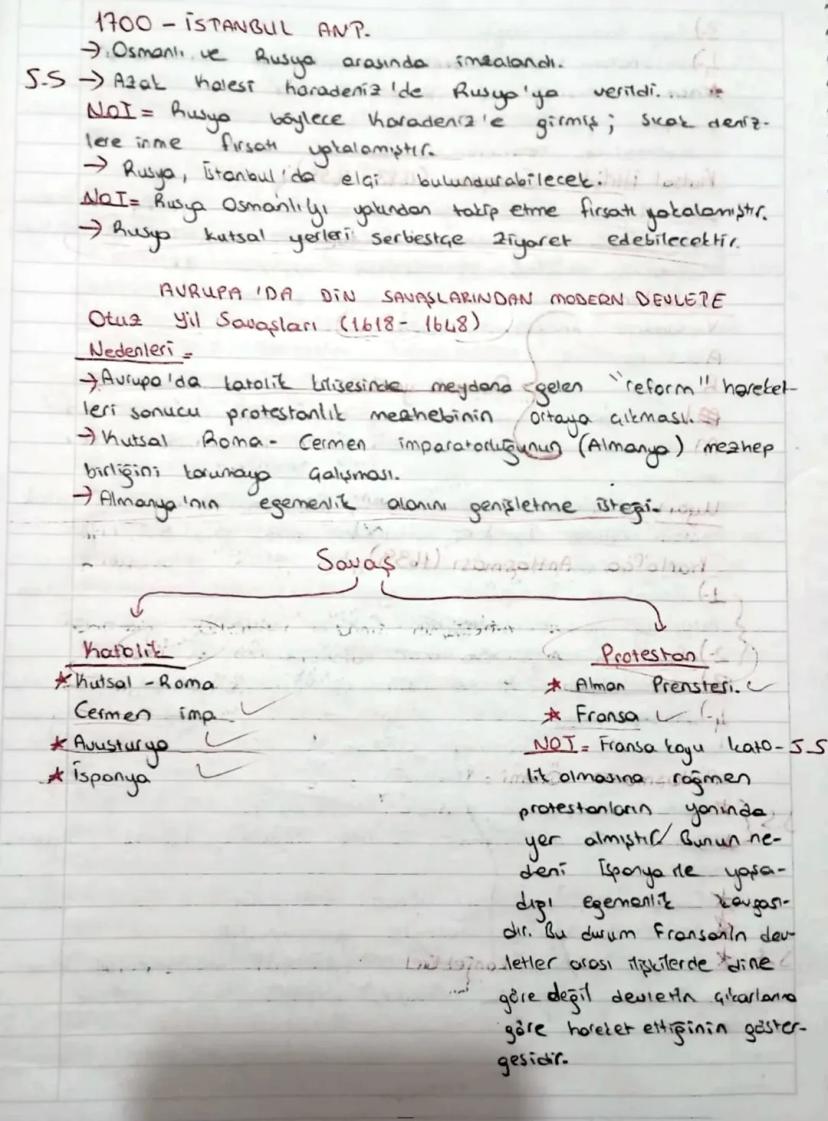 1700 - İSTANBUL ANT.
→ Osmanlı ve Rusya arasında imzalandı.
S.S → Azak kalesi karadeniz'de Rusya'ya verildi.
NOT = Rusya böylece Karadeniz'e girmiş; sıcak deniz-
lere inme fırsatı yakalamıştır.
→ Rusya, İstanbul'da elçi bulundurabilecek.
NOT = Rusya Osmanlı'yı yakından takip etme fırsatı yakalamıştır.
→ Rusya kutsal yerleri serbestçe ziyaret edebilecektir.
AVRUPA'DA DİN SAVAŞLARINDAN MODERN DEVLETE
Otuz Yıl Savaşları (1618 - 1648)
Nedenleri =
→ Avrupa'da katolik kilisesinde meydana gelen "reform" hareket-
leri sonucu protestanlık mezhebinin ortaya çıkması.
→ Kutsal Roma - Cermen imparatorluğunun (Almanya) mezhep
birliğini korumaya çalışması.
→ Almanya'nın egemenlik alanını genişletme isteği.
Savaş
Katolik
* Kutsal - Roma
Cermen imp
* Avusturya
* İspanya
Protestan
* Alman Prensleri.
* Fransa
NOT = Fransa koyu kato- S.S
lik olmasına rağmen
protestanların yanında
yer almıştır/ Bunun ne-
deni İspanya ile yaşa-
dığı egemenlik kavgası-
dır. Bu durum Fransanın dev-
letler arası ilişkilerde dine
göre değil devletin çıkarlarına
göre hareket ettiğinin göster-
gesidir.